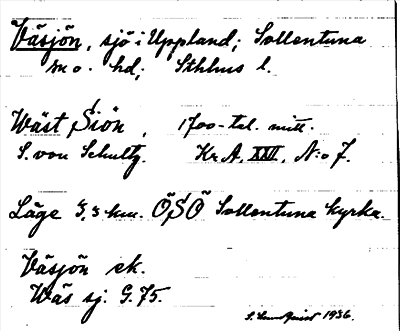 Väsjön, sjö i Uppland; Sollentuna
sn o. hd; Sthlms l.
Wäst Siön, 1700-tal. mitt.
S. von Schultz. Kr. A. XXVI, N:o 7.
Läge 3,3 km. ÖSÖ Sollentuna kyrka.
Väsjön ek.
Wäs sj. G. 75.
1936.